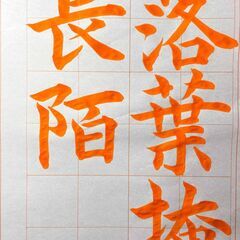 落葉掩
長陌